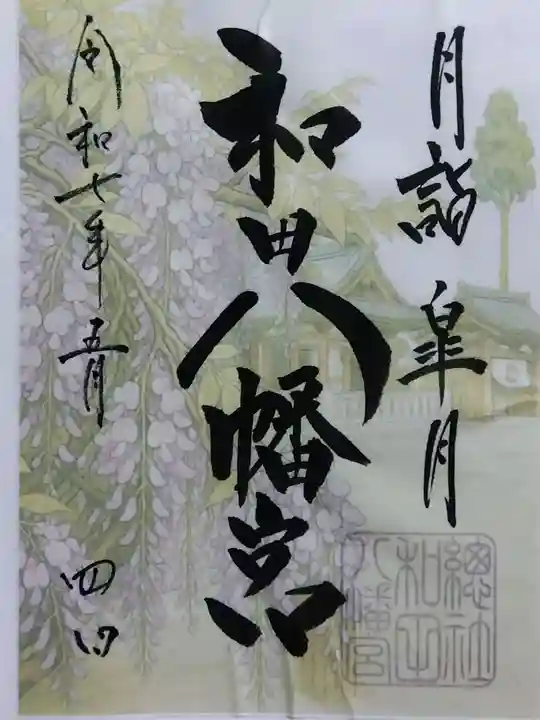 月詣 皐月
和田八幡宮
令和七年 五月 四日
總社
和田
八幡宮